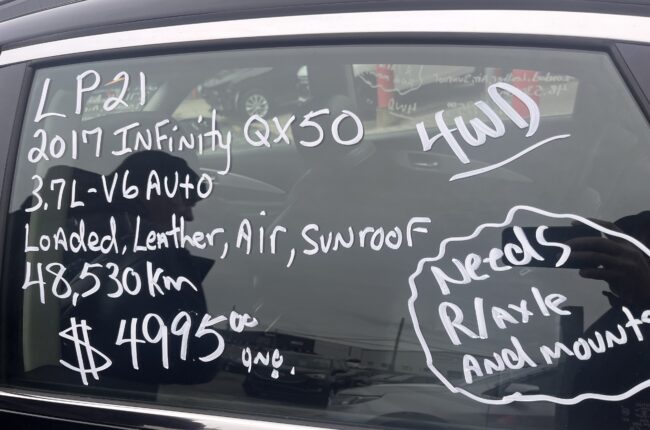 LP21
2017 INFinity QX50
4WD
3.7L-V6 AUtO
LoAded, Leather, Air, SUNROOF
48,530km
$4995.00 ONO.
Needs
R/axle
ANd mounts